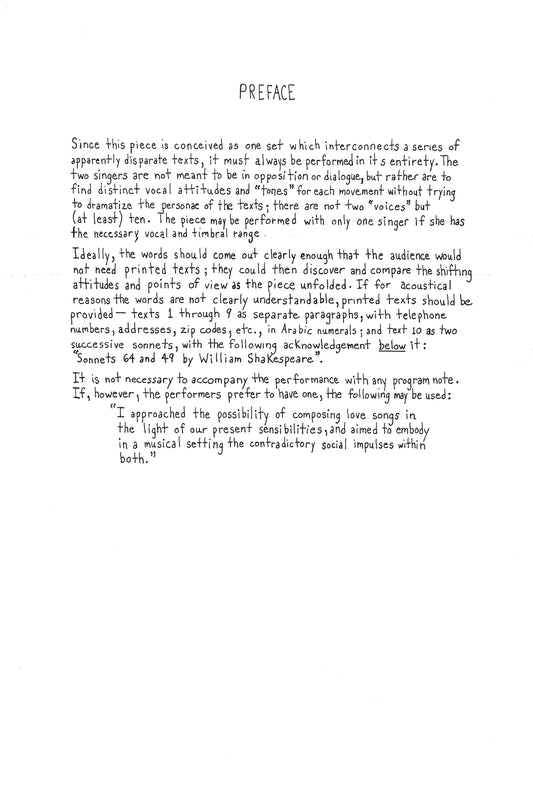 PREFACE
Since this piece is conceived as one set which interconnects a series of
apparently disparate texts, it must always be performed in its entirety. The
two singers are not meant to be in opposition or dialogue, but rather are to
find distinct vocal attitudes and "tones" for each movement without trying
to dramatize the personae of the texts; there are not two "voices" but
(at least) ten. The piece may be performed with only one singer if she has
the necessary vocal and timbral range.
Ideally, the words should come out clearly enough that the audience would
not need printed texts; they could then discover and compare the shifting
attitudes and points of view as the piece unfolded. If for acoustical
reasons the words are not clearly understandable, printed texts should be
provided— texts 1 through 9 as separate paragraphs, with telephone
numbers, addresses, zip codes, etc., in Arabic numerals; and text 10 as two
successive sonnets, with the following acknowledgement below it:
"Sonnets 64 and 49 by William Shakespeare".
It is not necessary to accompany the performance with any program note.
If, however, the performers prefer to have one, the following may be used:
"I approached the possibility of composing love songs in
the light of our present sensibilities, and aimed to embody
in a musical setting the contradictory social impulses within
both."